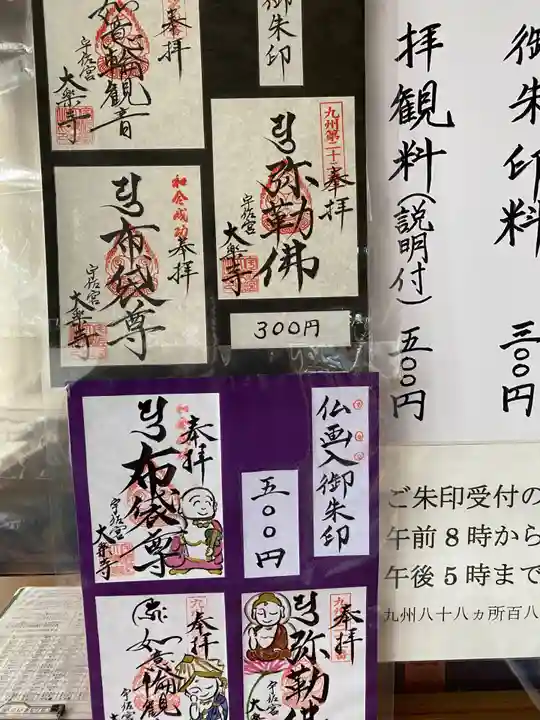 御朱印料 三〇〇円
拝観料(説明付) 五〇〇円
ご朱印受付の
午前8時から
午後5時まで
九州八十八ヵ所百八
御朱印
奉拝
如意輪観音
宇佐宮
大楽寺
九州第二十二
奉拝
弥勒佛
宇佐宮
大楽寺
300円
奉拝
布袋尊
宇佐宮
大楽寺
仏画入御朱印
五〇〇円
奉拝
布袋尊
宇佐宮
大楽寺
奉拝
弥勒佛
宇佐宮
大楽寺
奉拝
如意輪観
宇佐宮
大楽寺